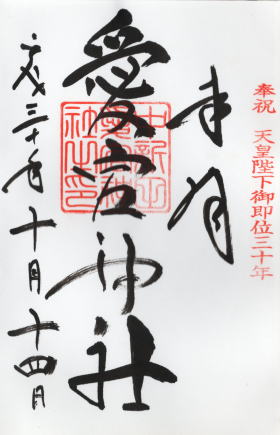 奉祝 天皇陛下御即位三十年
奉拝
愛宕神社
中新田
社之印
平成三十年十月十四日